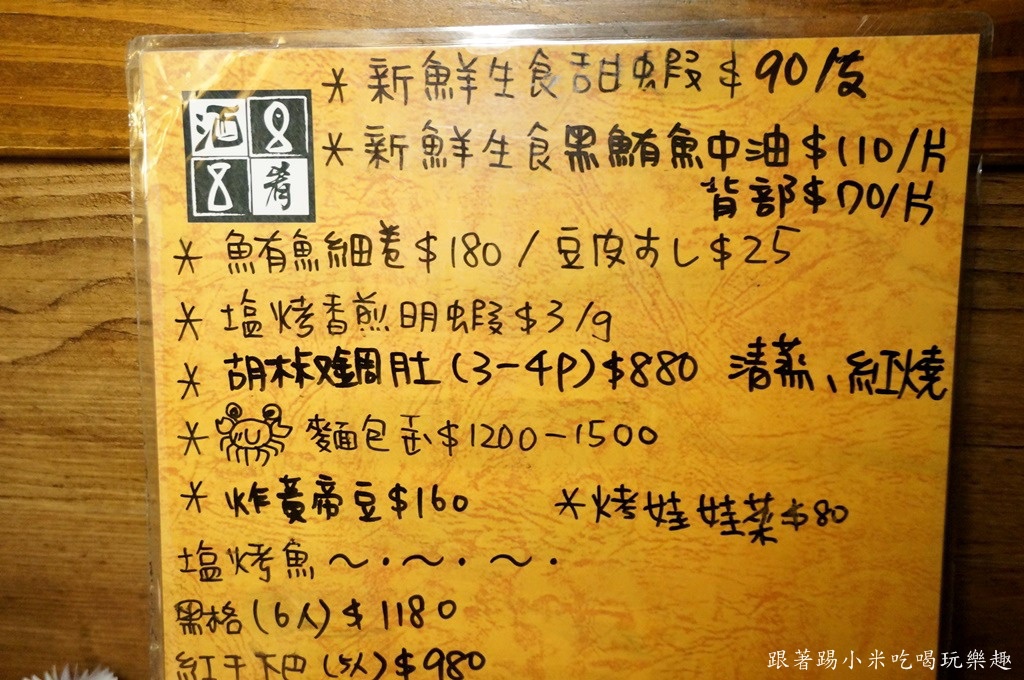 ＊新鮮生食甜蝦$90/支
酒8
8肴
＊新鮮生食黑鮪魚中油$110/片
背部$70/片
＊鮪魚細卷$180/豆皮すし$25
＊塩烤香煎明蝦$3/g
＊胡椒 肚(3-4P)$880 清蒸、紅燒
＊麵包 $1200-1500
＊炸黃帝豆$160 ＊烤娃娃菜$80
塩烤魚～·～·～·
黑格(6人)$1180
紅 下巴(5人)$980
跟著踢小米吃喝玩樂趣